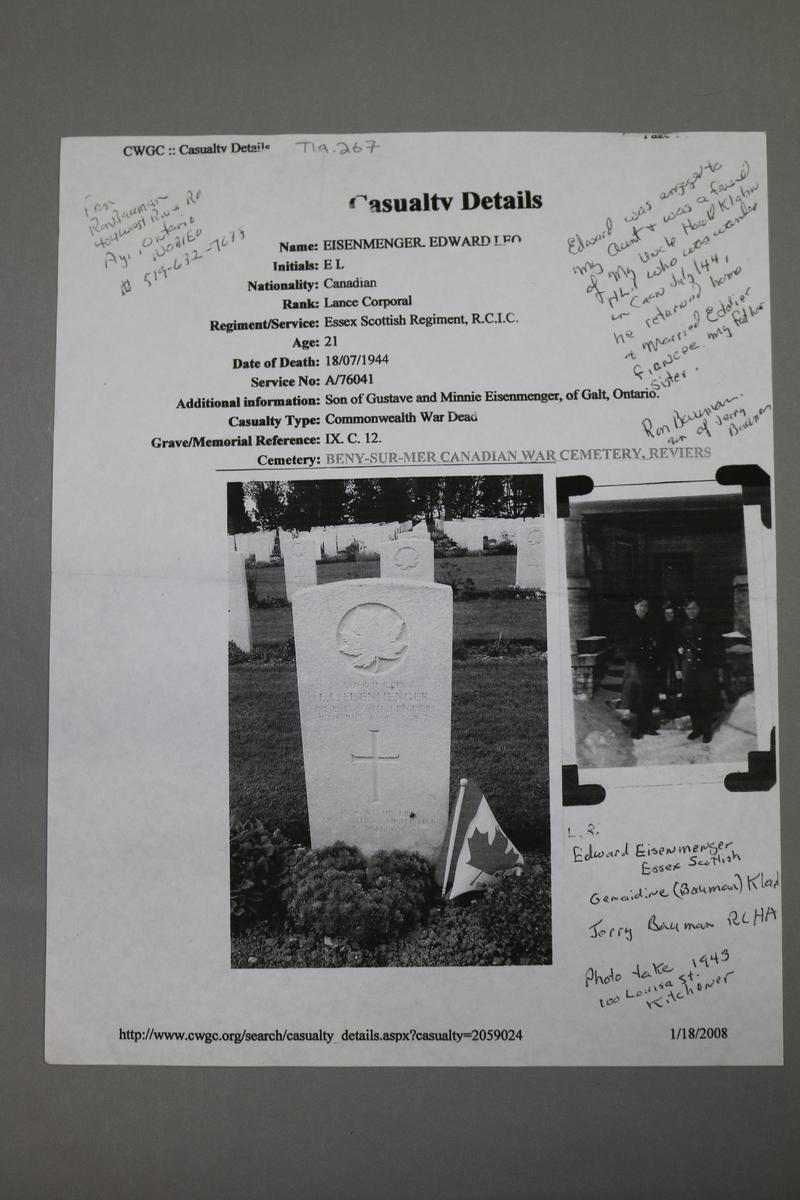 CWGC :: Casualty Details
T19.267
From
Ron Bauman
404 West River Rd
Ay, Ontario
N0B1E0
519-632-7678
Casualty Details
Edward was engaged to
my Aunt & was a friend
of my Uncle Harold
HLI who was wounded
in Caen July/44,
he returned home
& married Eddie's
fiancee. my father
sister.
Ron Bauman.
son of Jerry
Bauman
Name: EISENMENGER, EDWARD LEO
Initials: E L
Nationality: Canadian
Rank: Lance Corporal
Regiment/Service: Essex Scottish Regiment, R.C.I.C.
Age: 21
Date of Death: 18/07/1944
Service No: A/76041
Additional information: Son of Gustave and Minnie Eisenmenger, of Galt, Ontario.
Casualty Type: Commonwealth War Dead
Grave/Memorial Reference: IX. C. 12.
Cemetery: BENY-SUR-MER CANADIAN WAR CEMETERY, REVIERS
E.L. EISENMENGER
L.R.
Edward Eisenmenger
Essex Scottish
Geraidine (Bauman) Klad
Jerry Bauman RCHA
Photo take 1943
100 Louisa St.
Kitchener
http://www.cwgc.org/search/casualty_details.aspx?casualty=2059024
1/18/2008